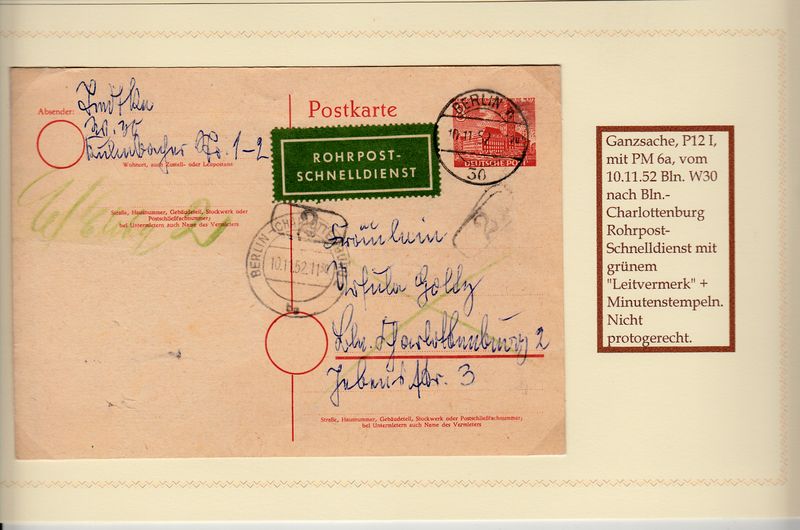 Absender:
Postkarte
Kulmbacher Str. 1-2
Wohnort, auch Zustell- oder Leitpostamt
Straße, Hausnummer, Gebäudeteil, Stockwerk oder
Postschließfachnummer;
bei Untermietern auch Name des Vermieters
ROHRPOST-
SCHNELLDIENST
BERLIN W
10.11.52
30
DEUTSCHE POST
BERLIN-CHARLOTTENBURG 2
10.11.52.11
2
Fräulein
Ursula
Bln. Charlottenburg 2
Jebensstr. 3
Straße, Hausnummer, Gebäudeteil, Stockwerk oder Postschließfachnummer;
bei Untermietern auch Name des Vermieters
Ganzsache, P12 I,
mit PM 6a, vom
10.11.52 Bln. W30
nach Bln.-
Charlottenburg
Rohrpost-
Schnelldienst mit
grünem
"Leitvermerk" +
Minutenstempeln.
Nicht
protogerecht.